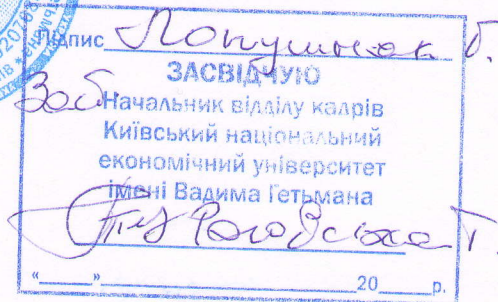 Підпис Лопушняк Г.
ЗАСВІДЧУЮ
Начальник відділу кадрів
Київський національний
економічний університет
імені Вадима Гетьмана
Т.
“____”____________20____р.